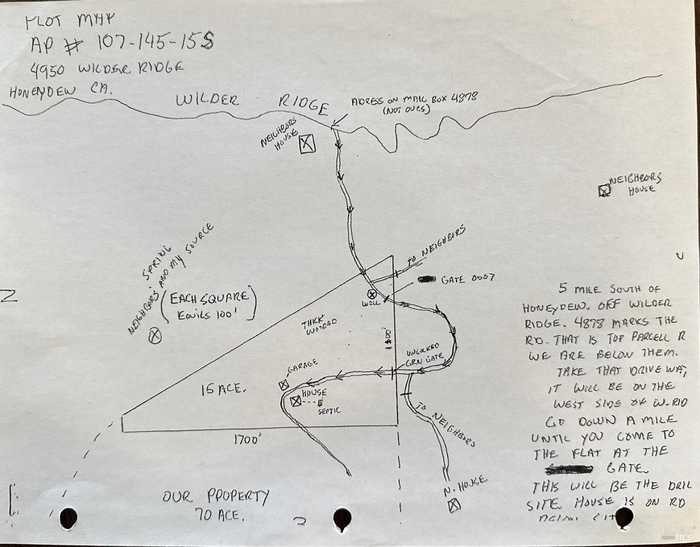 PLOT MAP
AP # 107-145-15S
4950 WILDER RIDGE
HONEYDEW CA.
WILDER RIDGE
ADRESS ON MAIL BOX 4878
(NOT OURS)
NEIGHBORS
HOUSE
NEIGHBORS
HOUSE
TO NEIGHBORS
GATE 0007
WELL
SPRING
NEIGHBORS AND MY SOURCE
(EACH SQUARE
EQUILS 100')
THICK
WOODED
UNLOCKED
GRN GATE
GARAGE
HOUSE
SEPTIC
15 ACE.
1700'
TO NEIGHBORS
N. HOUSE
OUR PROPERTY
70 ACE.
5 MILE SOUTH OF
HONEYDEW. OFF WILDER
RIDGE. 4878 MARKS THE
RD. THAT IS TOP PARCELL R
WE ARE BELOW THEM.
TAKE THAT DRIVE WAY,
IT WILL BE ON THE
WEST SIDE OF W. RID
GO DOWN A MILE
UNTIL YOU COME TO
THE FLAT AT THE
GATE.
THIS WILL BE THE DRIL
SITE HOUSE IS ON RD